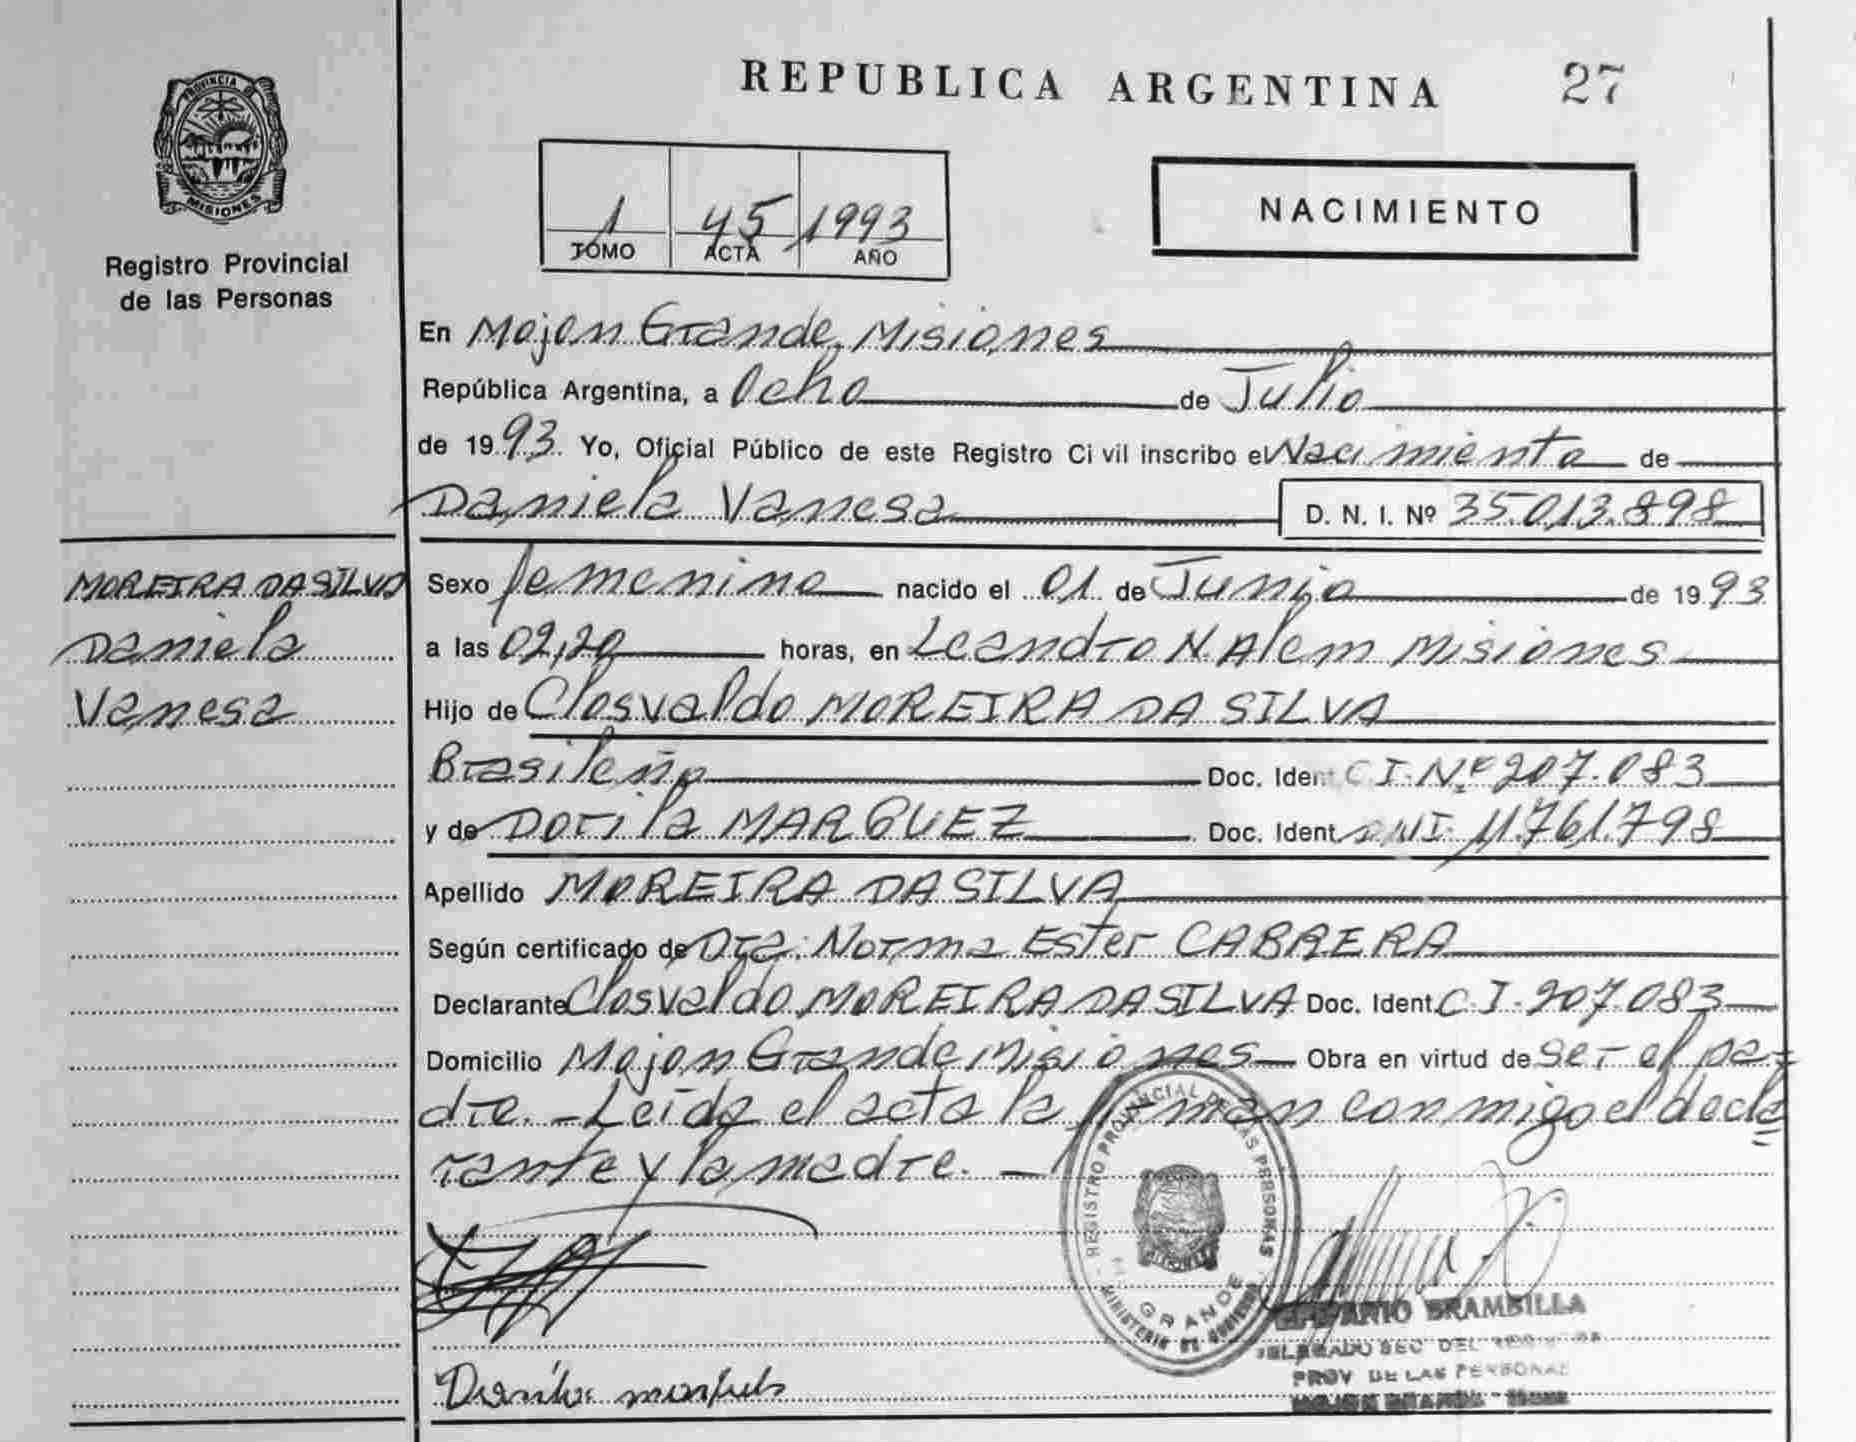 PROVINCIA DE
MISIONES
Registro Provincial
de las Personas
REPUBLICA ARGENTINA 27
1 45 1993
TOMO ACTA AÑO
NACIMIENTO
En Mojon Grande, Misiones
República Argentina, a Ocho de Julio
de 1993. Yo, Oficial Público de este Registro Civil inscribo el Nacimiento de
Daniela Vanesa D. N. I. Nº 35.013.898
MOREIRA DA SILVA
Daniela
Vanesa
Sexo femenino nacido el 01 de Junio de 1993
a las 02,20 horas, en Leandro N. Alem Misiones
Hijo de Closvaldo MOREIRA DA SILVA
Brasileño Doc. Ident C.I.Nº 207.083
y de Dorila MARQUEZ Doc. Ident DNI 11.761.798
Apellido MOREIRA DA SILVA
Según certificado de Dra. Norma Ester CABRERA
Declarante Closvaldo MOREIRA DA SILVA Doc. Ident C.I. 207.083
Domicilio Mojon Grande Misiones Obra en virtud de ser el pa-
dre. - Leida el acta la firman conmigo el decla
rante y la madre. -
REGISTRO PROVINCIAL DE LAS PERSONAS
GRANDE
MINISTERIO DE GOBIERNO
BRAMBILLA
DELEGADO SEC DEL
PROV DE LAS PERSONAS